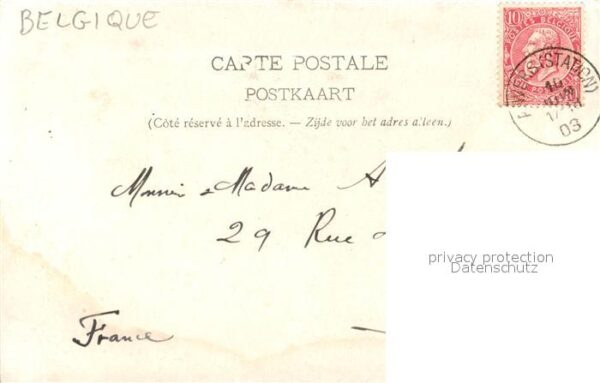 BELGIQUE
10
CARTE POSTALE
POSTKAART
(Côté réservé à l'adresse. — Zijde voor het adres alleen.)
(STATION)
03
Madame A
29 Rue
France
privacy protection
Datenschutz